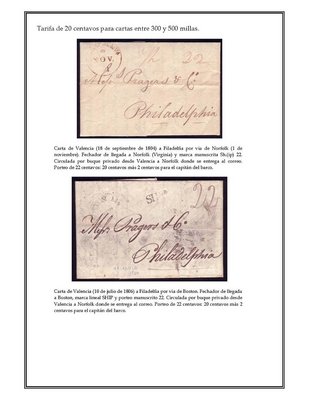 Tarifa de 20 centavos para cartas entre 300 y 500 millas.
NOV.
22
Mess Pragers & Co.
Philadelphia
Carta de Valencia (18 de septiembre de 1804) a Filadelfia por vía de Norfolk (1 de
noviembre). Fechador de llegada a Norfolk (Virginia) y marca manuscrita Sh.(ip) 22.
Circulada por buque privado desde Valencia a Norfolk donde se entrega al correo.
Porteo de 22 centavos: 20 centavos más 2 centavos para el capitán del barco.
22
Messrs Pragers & Co.
Philadelphia
Carta de Valencia (10 de julio de 1806) a Filadelfia por vía de Boston. Fechador de llegada
a Boston, marca lineal SHIP y porteo manuscrito 22. Circulada por buque privado desde
Valencia a Norfolk donde se entrega al correo. Porteo de 22 centavos: 20 centavos más 2
centavos para el capitán del barco.